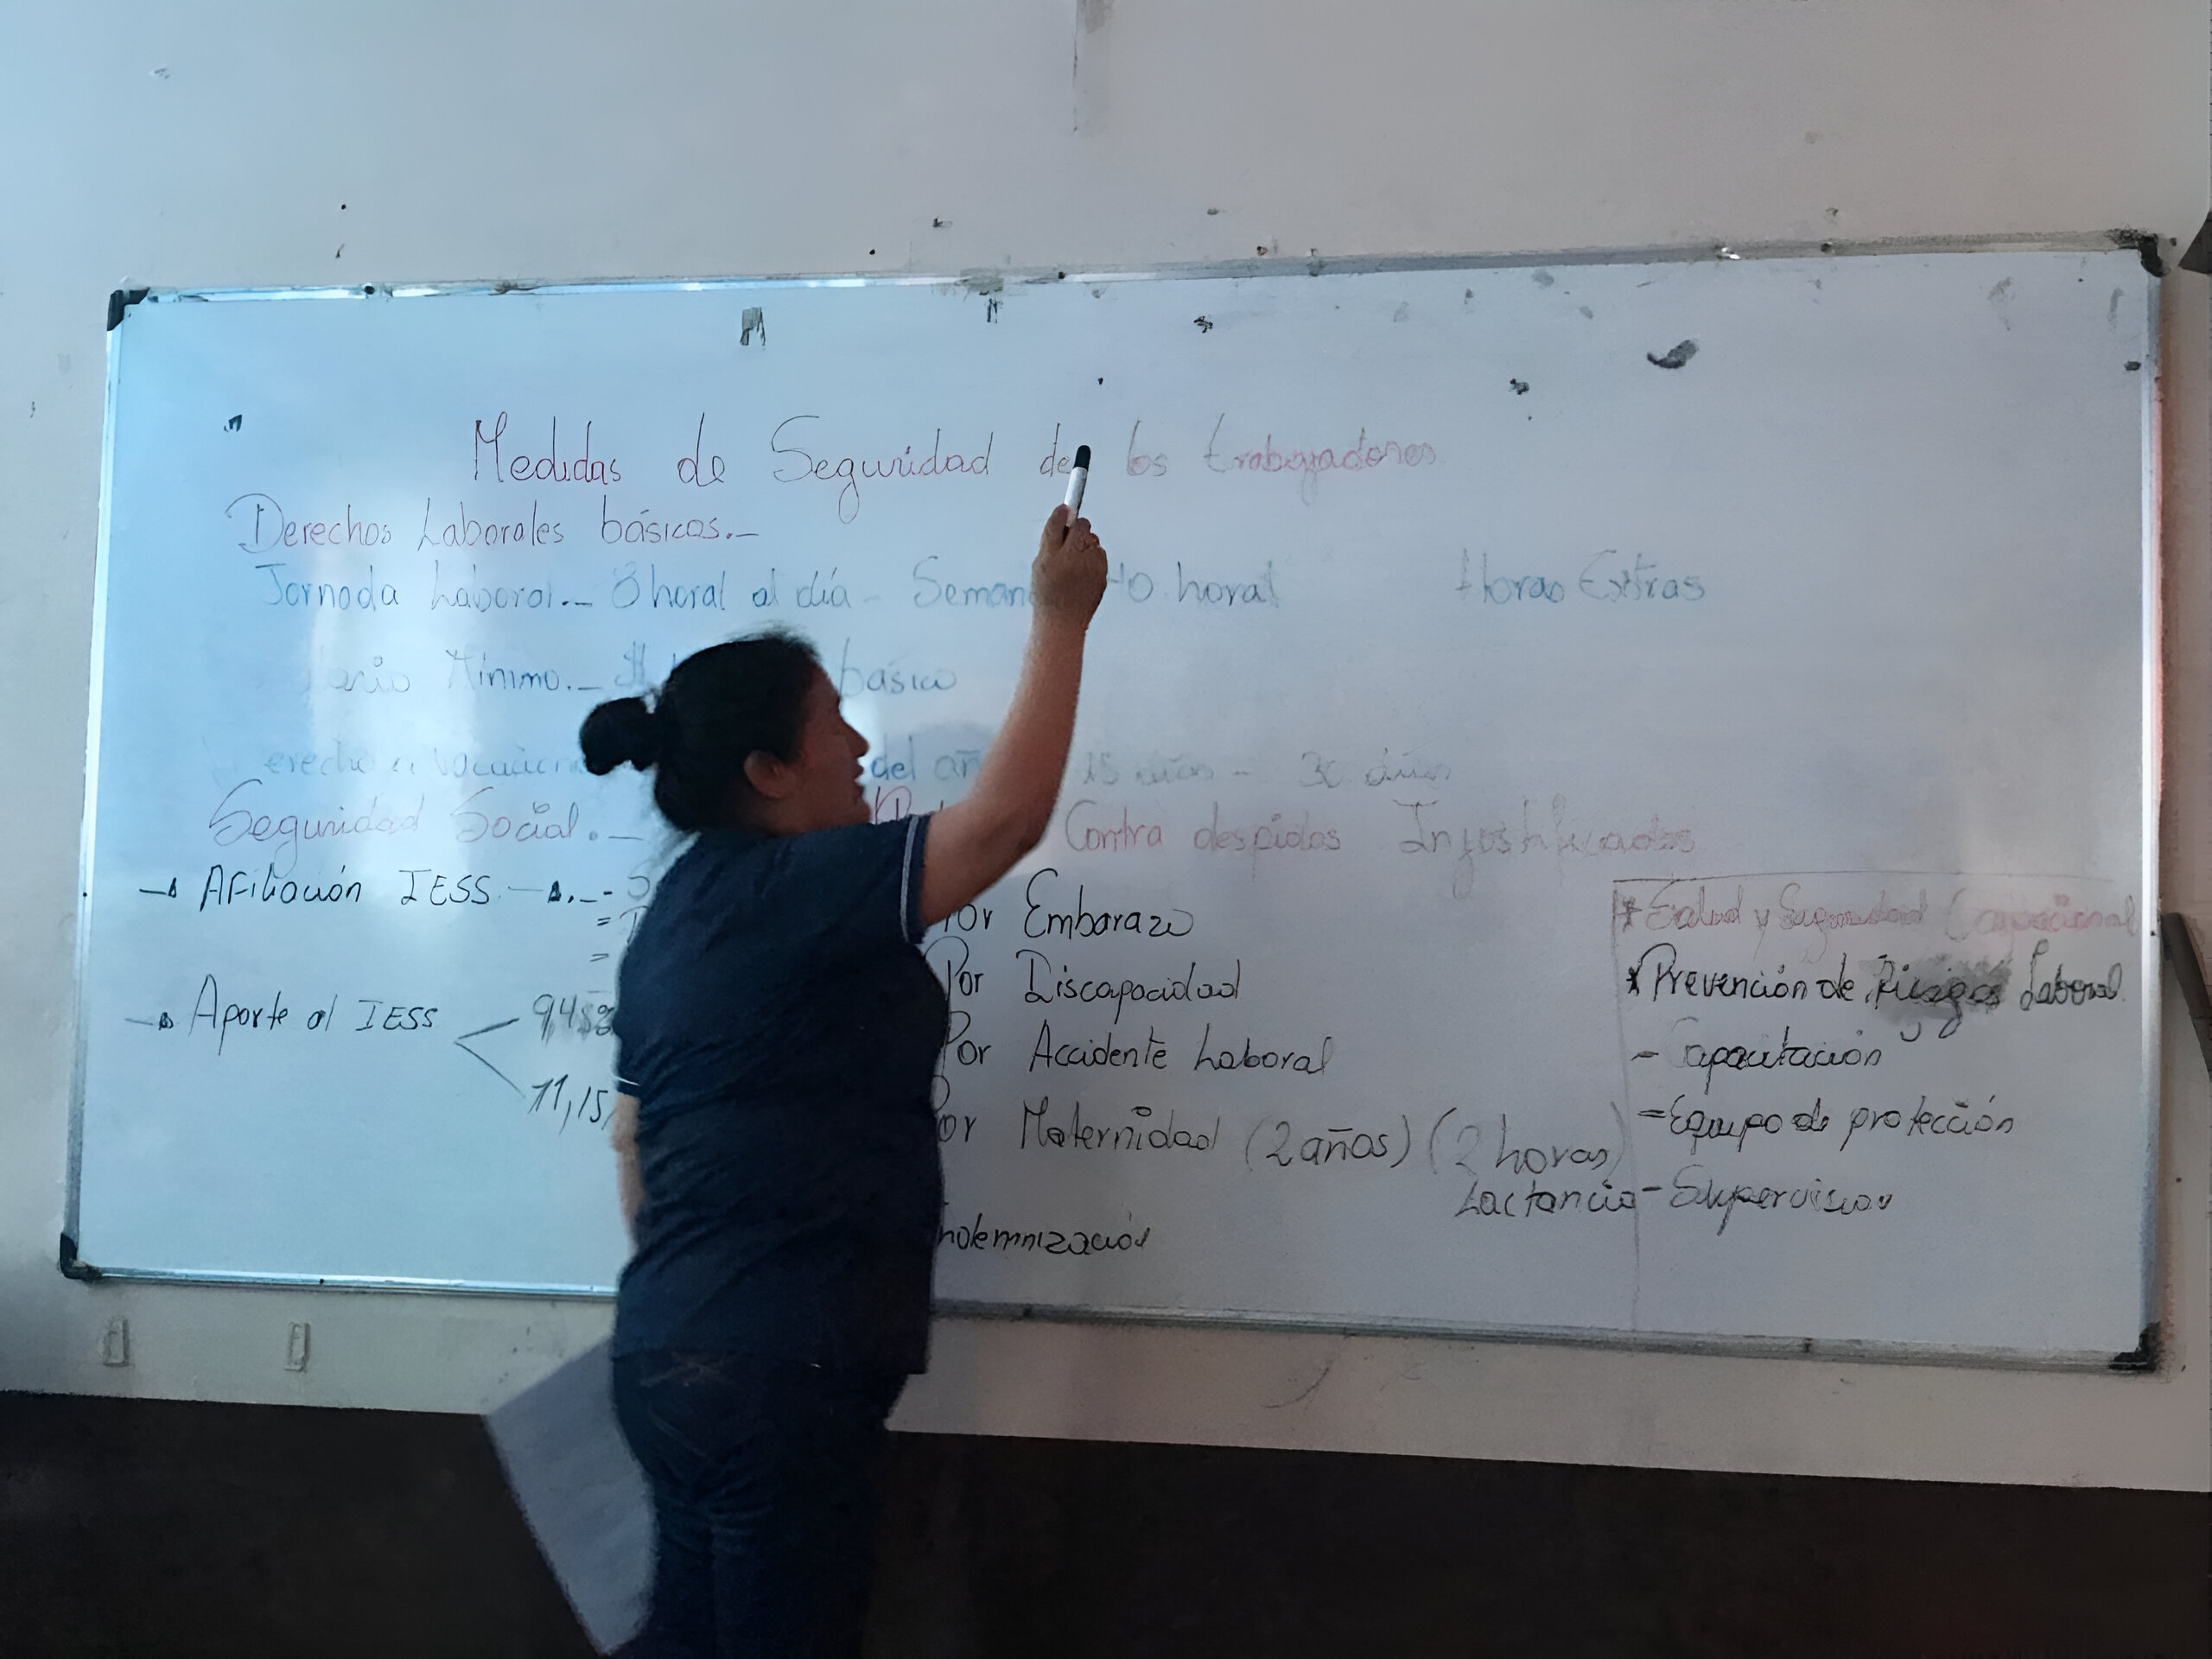 Medidas de Seguridad de los trabajadores
Derechos Laborales básicos.-
Jornada Laboral.- 8 horal al día - Seman 40 horal Horas Extras
Mínimo.- básico
del 15 días - 30 días
Seguridad Social.-
Contra despidos Injustificados
→ AFiliación IESS →
Por Embarazo
Por Discapacidad
→ Aporte al IESS
9,45%
11,15
Por Accidente Laboral
Por Maternidad (2 años) (2 horas)
Lactancia
Indemnización
* Salud y Seguridad
* Prevención de Riesgos Laboral
- Capacitación
= Equipo de protección
- Supervision